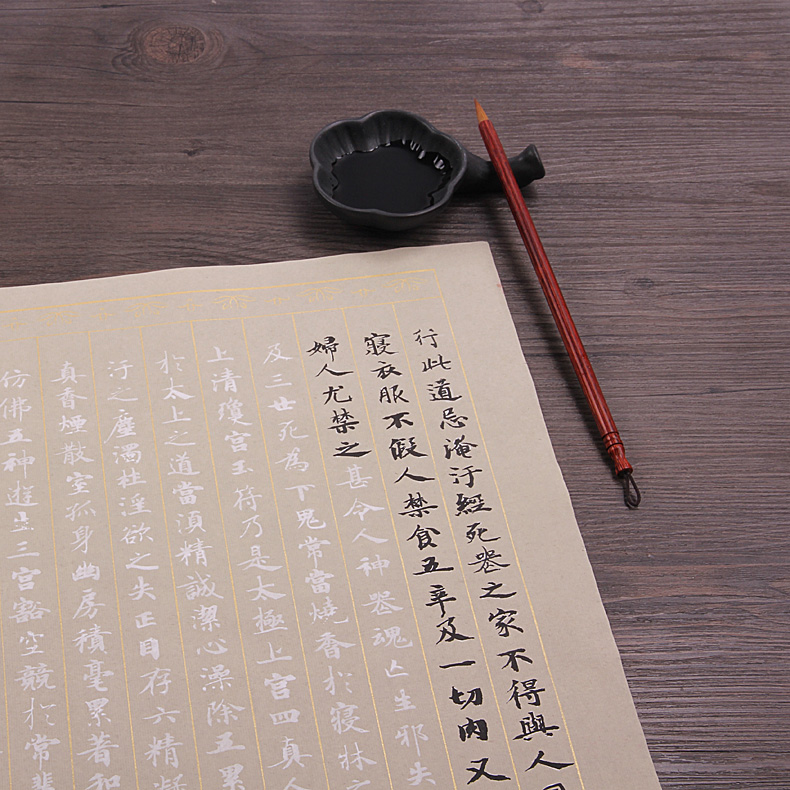 行此道忌淹汙經死器之家不得與人
寢衣服不假人禁食五辛及一切肉又
婦人尤禁之甚令人神器魂亡生邪失
及三世死為下鬼常當燒香於寢牀之
上清瓊宮玉符乃是太極上宮四真人
於太上之道當須精誠潔心澡除五累
汙之塵濁杜淫欲之失正目存六精凝
真香煙散室孤身幽房積毫累著和
仿佛五神遊生三宮豁空競於常輩